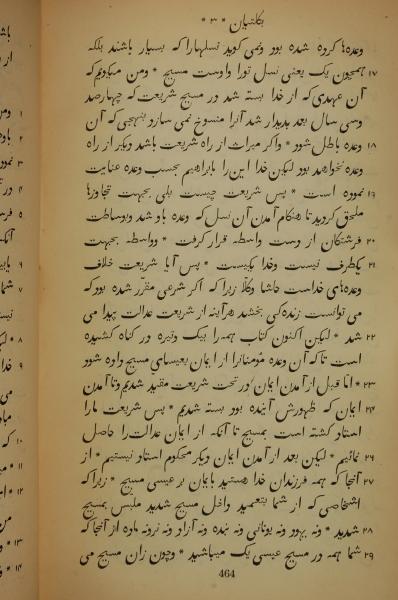 بگلتیان * ۳ *
وعده‌ها کرده شده بود ونمی گوید نسلهارا که بسیار باشند بلکه
۱۷ همچون یک یعنی نسل تورا واوست مسیح * ومن میگویم که
آن عهدی که از خدا بسته شد در مسیح شریعت که چهارصد
وسی سال بعد پدیدار شد آنرا منسوخ نمی سازد بنهجی که آن
۱۸ وعده باطل شود * واگر میراث از راه شریعت باشد دیگر از راه
وعده نخواهد بود لیکن خدا این را بابراهیم بحسب وعده عنایت
۱۹ نموده است * پس شریعت چیست بلی بجهت تجاوزها
ملحق گردید تا هنگام آمدن آن نسل که وعده باو شد وبوساطت
۲۰ فرشتگان از دست واسطه قرار گرفت * وواسطه بجهت
۲۱ یکطرف نیست وخدا یکیست * پس آیا شریعت خلاف
وعده‌های خداست حاشا وکلّا زیرا که اگر شرعی مقرّر شده بود که
می توانست زندگی بخشد هرآینه از شریعت عدالت پیدا می
۲۲ شد * لیکن اکنون کتاب همه را بیک وتیره در گناه کشیده
است تا که آن وعده مؤمنانرا از ایمان بعیسای مسیح داده شود
۲۳ * اما قبل از آمدن ایمان در تحت شریعت مقید شدیم وتا آمدن
۲۴ ایمان که ظهورش آینده بود بسته شدیم * پس شریعت مارا
استاد گشته است بمسیح تا آنکه از ایمان عدالت را حاصل
۲۶ نمائیم * لیکن بعد از آمدن ایمان دیگر محکوم استاد نیستیم * از
۲۷ آنجا که همه فرزندان خدا هستید بایمان بر عیسی مسیح * زیرا که
اشخاصی که از شما بتعمید داخل مسیح شدید ملبس بمسیح
۲۸ شدید * ونه یهود ونه یونانی ونه بنده ونه آزاد ونه نرونه ماده از آنجا که
۲۹ شما همه در مسیح عیسی یک میباشید * وچون زان مسیح می
464